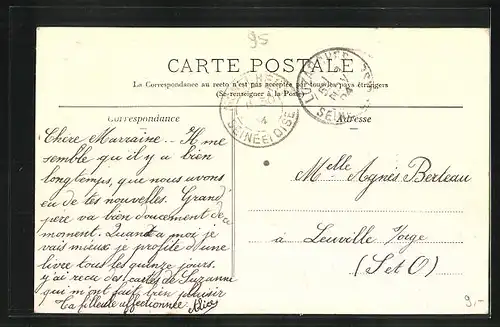 95
CARTE POSTALE
La Correspondance au recto n'est pas acceptée par tous les pays étrangers
(Se renseigner à la Poste)
SEINE ET OISE
Correspondance
Adresse
Chère Marraine.. Il me
semble qu'il y a bien
longtemps, que nous avons
eu de tes nouvelles. Grand
père va bien doucement de ce
moment. Quant a moi je
vais mieux je profite d'une
livre tous les quinze jours.
y'ai recu des cartes de Suzanne
qui m'ont fait bien plaisir
Ta filleule affectionnée Alice
Melle Agnès Berteau
à Leuville
(S et O)
9,-